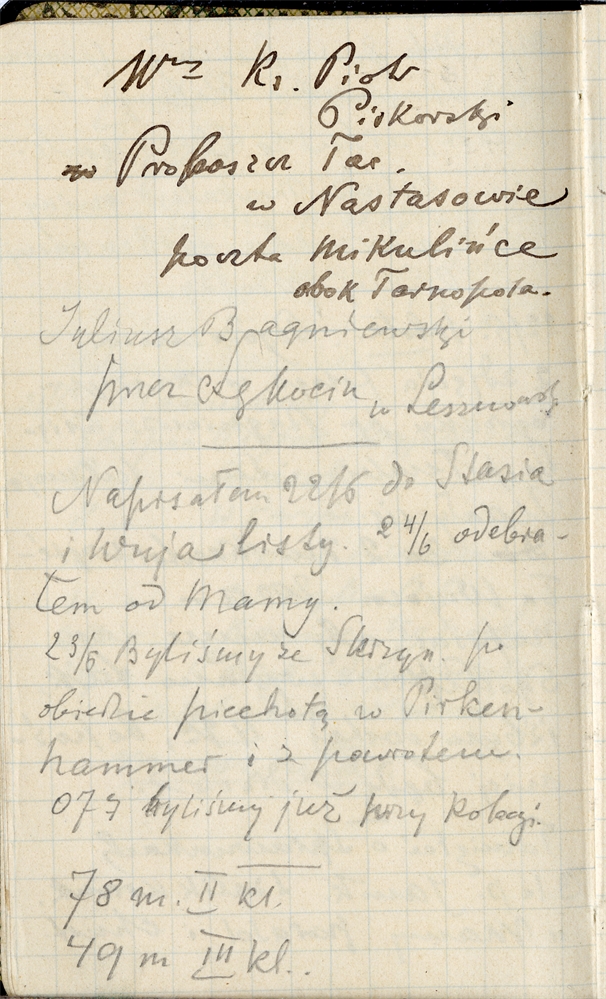 Wny Ks. Piotr
Piskorski
Proboszcz łac.
w Nastasowie
poczta Mikulińce
obok Tarnopola.
Juliusz Bagniewski
przez w
Napisałem 22/6 do Stasia
i Wuja listy. 24/6 odebra-
łem od Mamy.
23/6 Byliśmy ze Skrzyn. po
obiedzie piechotą w Pirken-
hammer i z powrotem.
O 7 byliśmy już przy kolacji.
78 m. II kl.
49 m III kl.